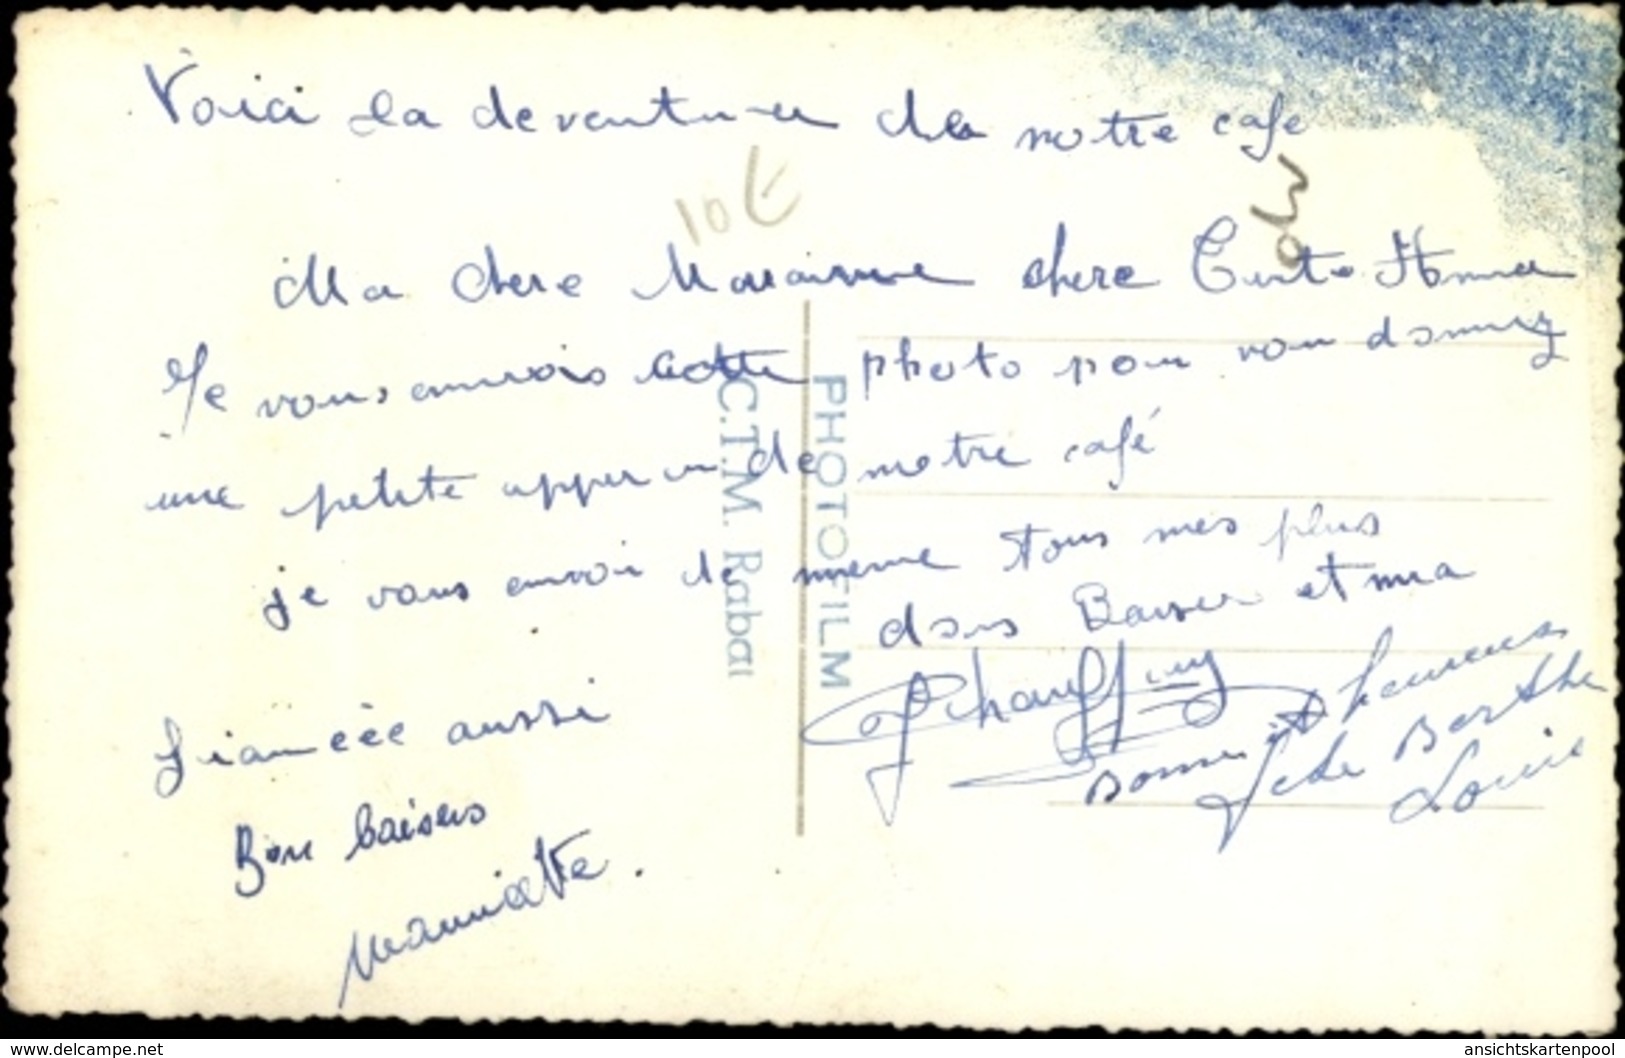 Voici la devanture de notre cafe
10 €
Ma chere Marianne chere Tente Anna
Je vous envois cette photo pour vous donnez
une petite apperu de notre café
je vous envoi de meme tous mes plus
dous Baiser et ma
fiancéee aussi
Bon baisers
Mariette.
Berthe
Louis
C.T.M. Rabat
PHOTOFILM
www.delcampe.net
ansichtskartenpool